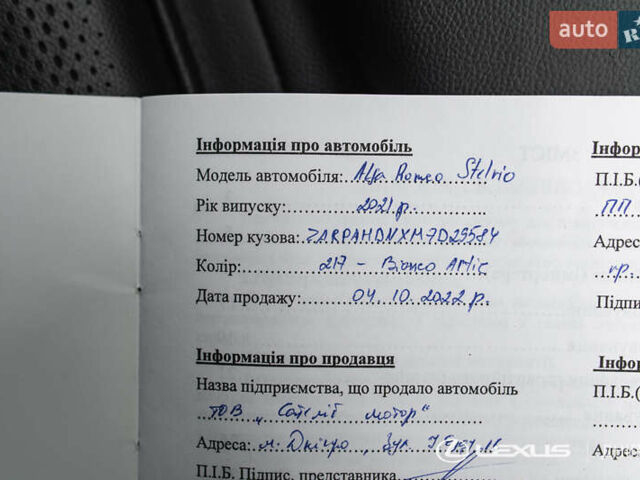 auto R
Інформація про автомобіль
Модель автомобіля: Alfa Romeo Stelvio
Рік випуску: 2021 р.
Номер кузова: ZARPAHDNXM7D29584
Колір: 217 - Bianco
Дата продажу: 04.10.2022 р.
Інформація про продавця
Назва підприємства, що продало автомобіль
ТОВ „Сателіт мотор"
Адреса: м. Дніпро, вул
П.І.Б. Підпис, представника
Інфор
П.І.Б.(
ПП
Адрес
пр.
Підпи
Інфор
П.І.Б.(
Адрес
LEXUS